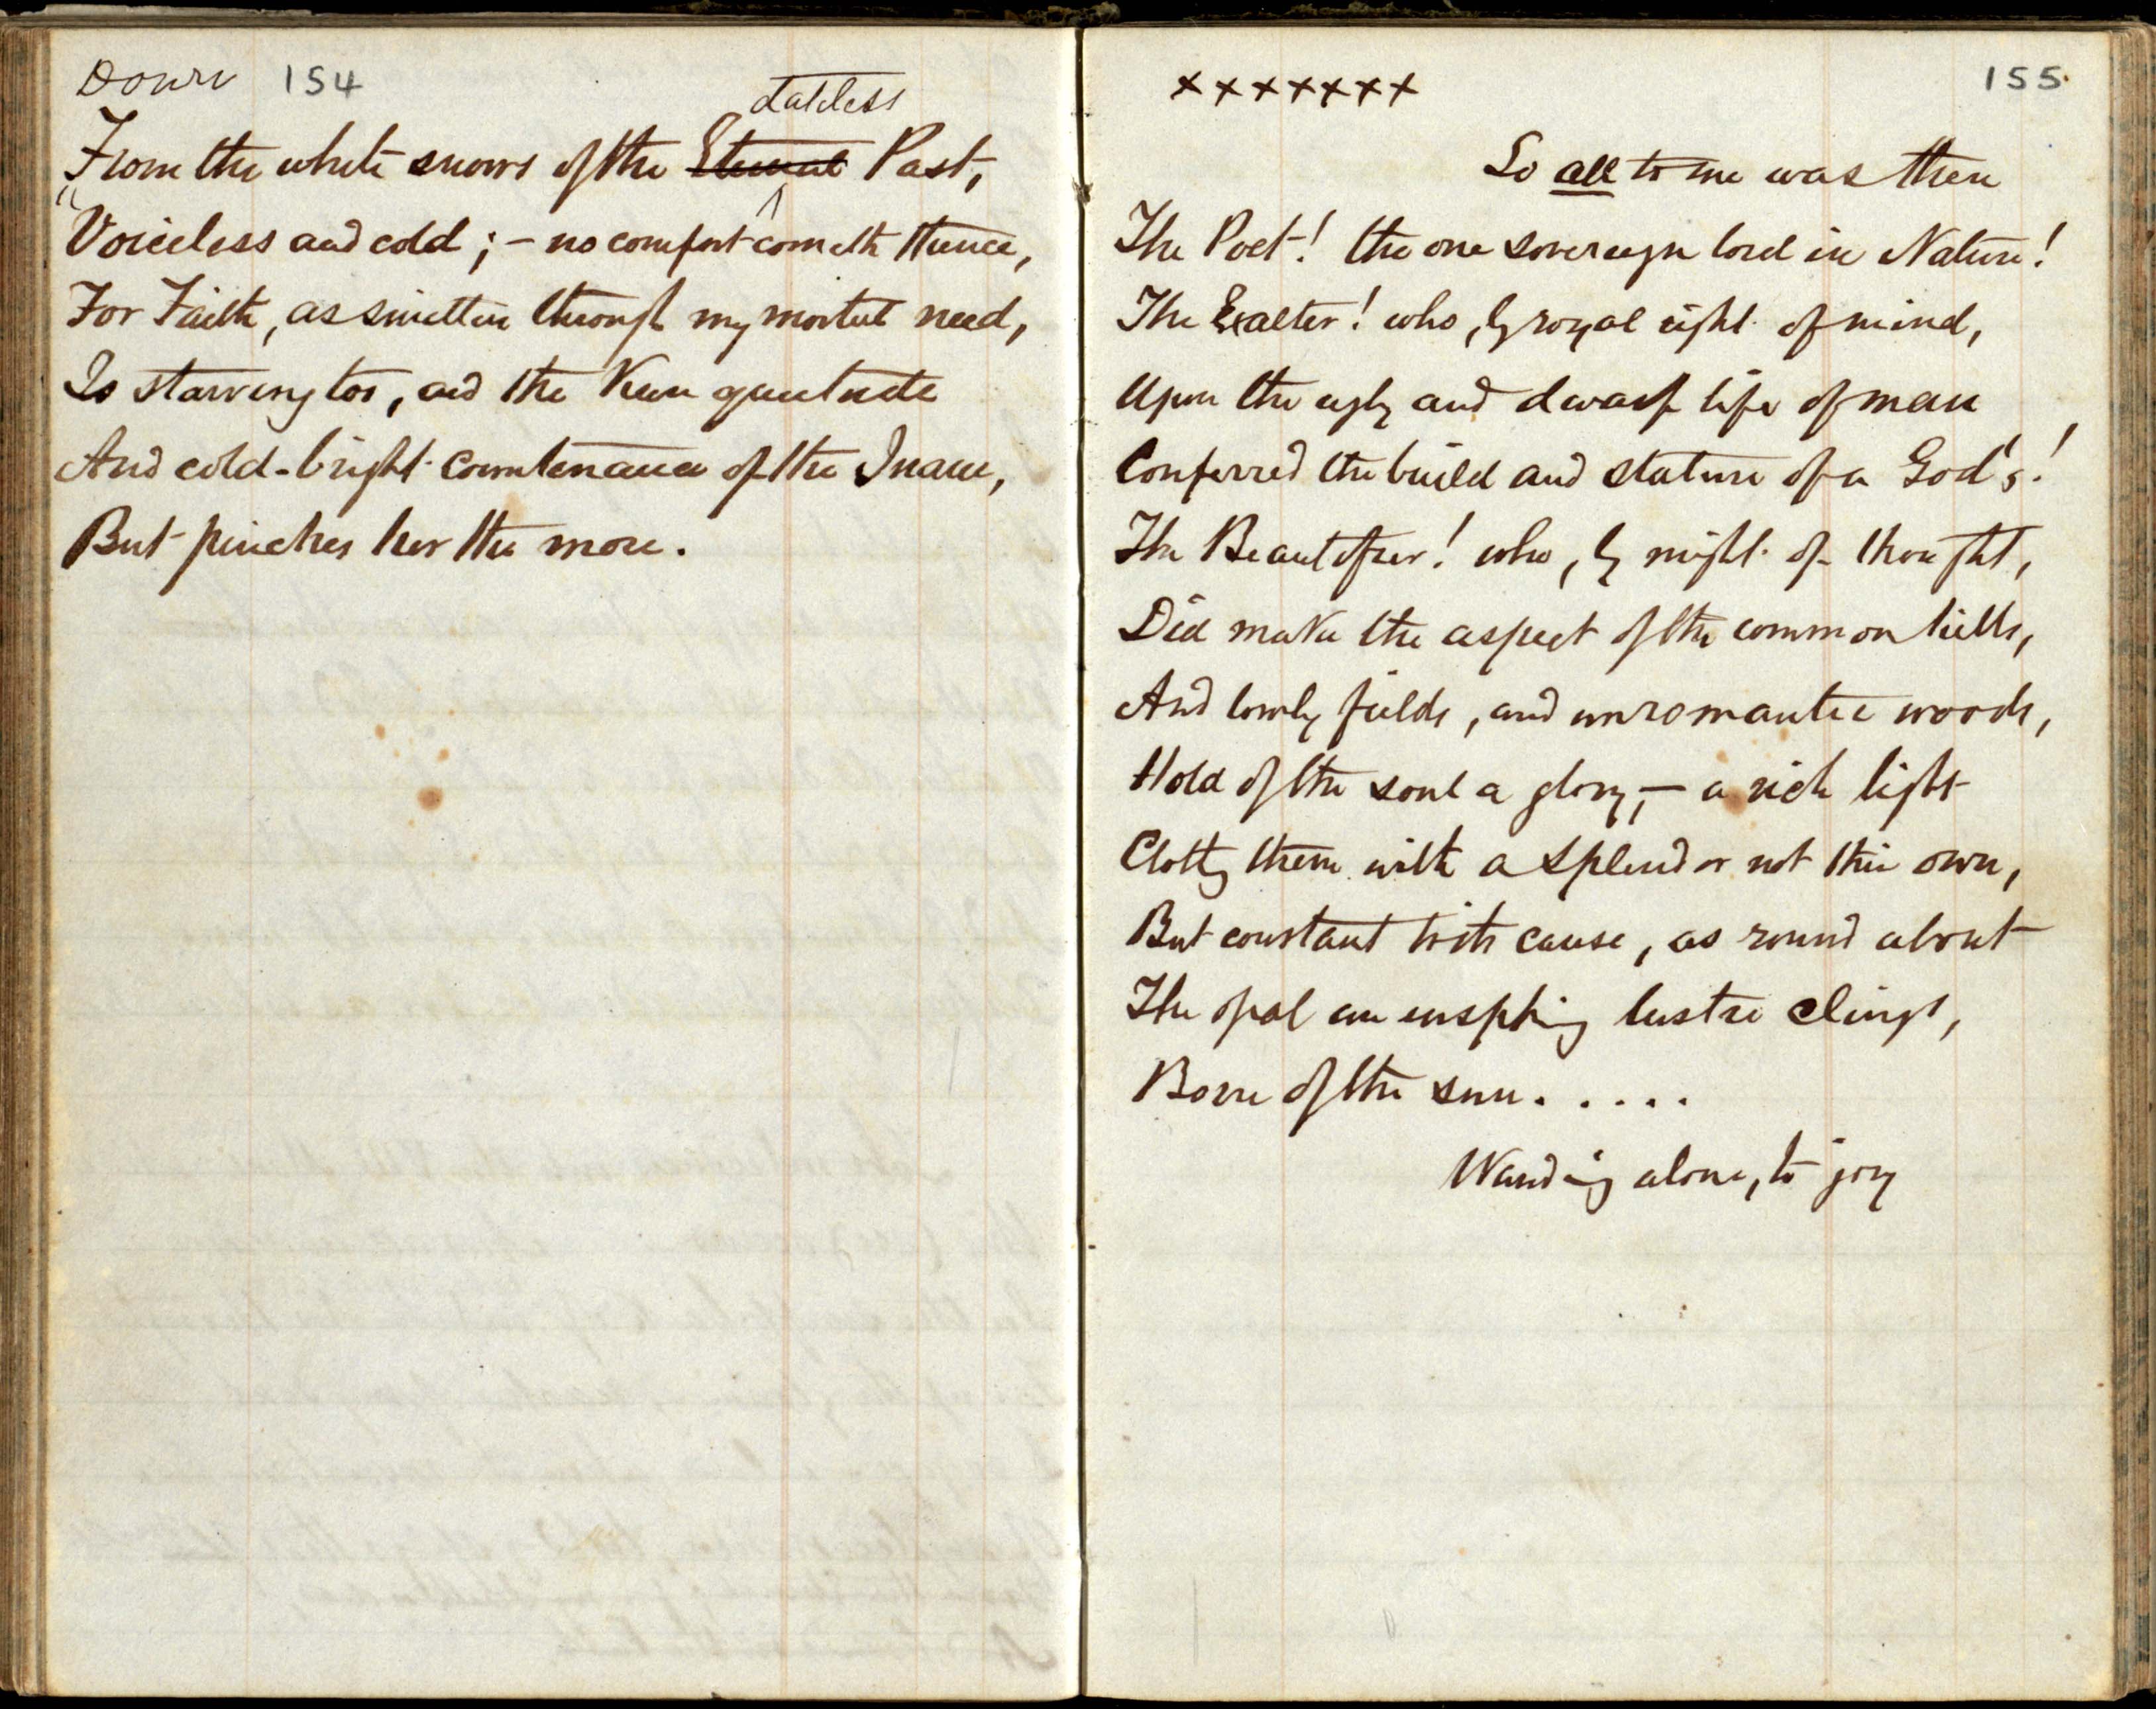 Down 154
dateless
From the white snows of the Eternal Past,
Voiceless and cold; – no comfort cometh thence,
For Faith, as smitten through my mortal need,
Is starving too, and the keen quietude
And cold-bright countenance of the Inane,
But pinches her the more.
x x x x x x x 155.
So all to me was then
The Poet! the one sovereign lord in Nature!
The Exalter! who, by royal right of mind,
Upon the ugly and dwarf life of man
Conferred the build and stature of a God's!
The Beautifier! who, by might of thought,
Did make the aspect of the common hills,
And lowly fields, and unromantic woods,
Hold of the soul a glory, – a rich light
Clothg them with a splendor not their own,
But constant to its cause, as round about
The opal an ensphing lustre clings,
Born of the sun. . . . .
Wanding alone, to joy